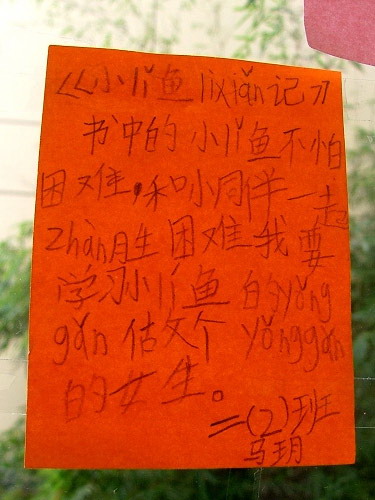 《小lǐ鱼lìxiǎn记》
书中的小lǐ鱼不怕
困难,和小同伴一起
zhàn胜困难我要
学习小lǐ鱼的yǒng
gǎn做个yǒnggǎn
的女生。
二(2)班
马玥